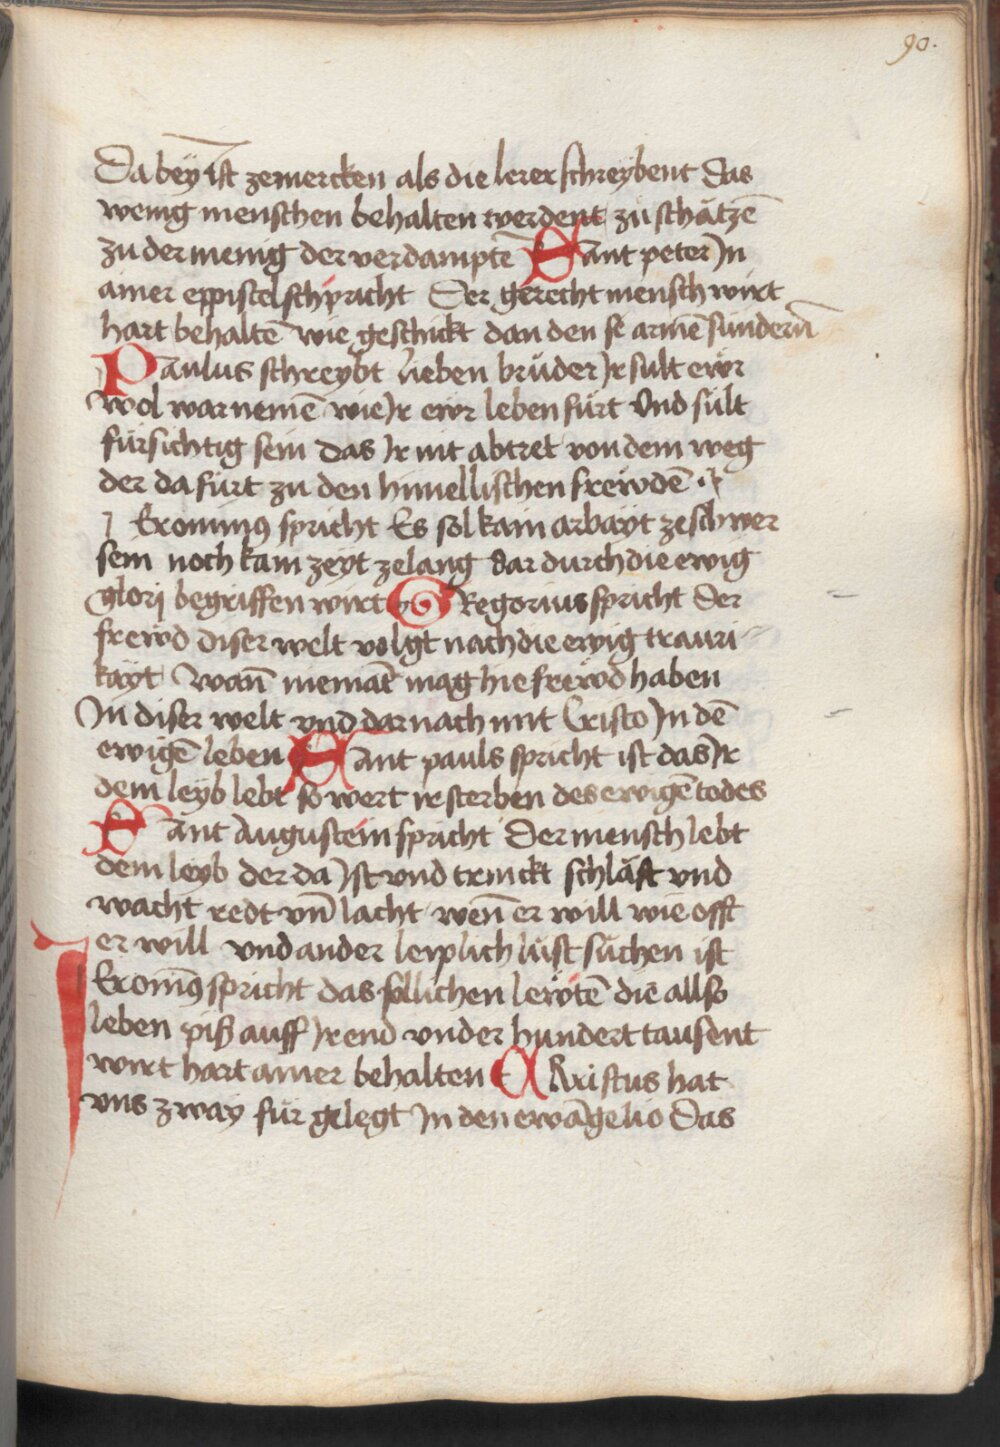 90.
Da bey ist zemercken als die lerer schreybent das
wenig menschen behalten werdent zů schätzē
zu der menig der verdamptē Sant peter Jn
ainer eppistel schpricht Der gerecht mensch wirt
hart behaltē wie geschickt dan den se armē sündern̄
Paulus schreybt lieben brüder Jr sült ewr
wol war nemē wie Jr ewr leben fürt Und sült
fürsichtig sein das Jr nit abtret von dem weg
der da fürt zu den himellischen frewdē
J Eronimꝯ spricht Es sol kain arbayt ze schwer
sein noch kain zeyt zelang dar durch die ewig
glorj begriffen wirt GRegorius spricht der
frewd diser welt volgt nach die ewig trauri-
kayt Wan̄ niemāt mag hie frewd haben
Jn diser welt vnd dar nach mit Cristo Jn dē
ewigē leben Sant pauls spricht ist das Jr
dem leyb lebt so wert ir sterben des ewigē todes
Sant Augustein spricht Der mensch lebt
dem leyb der da Jst vnd trinckt schlåft vnd
wacht redt vn̄ lacht wen̄ er will wie offt
er will vnd ander leiplich lüst süchen ist
JEronimꝯ spricht das söllichen lewtē die allso
leben piß auff Jr end vnder hundert tausent
wirt hart ainer behalten CRistus hat
vns zway für gelegt Jn den ewāgelio Das